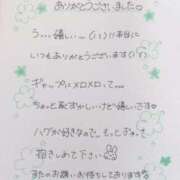 ありがとうございました♡
う...嬉しい...(;;)本当に
いつもありがとうございます(;;)
ギャップにメロメロって...
ちょっと恥ずかしいけど嬉しいです♡
ハグが好きなので、もっとぎゅって
抱きしめて下さい
またのお誘いお待ちしております